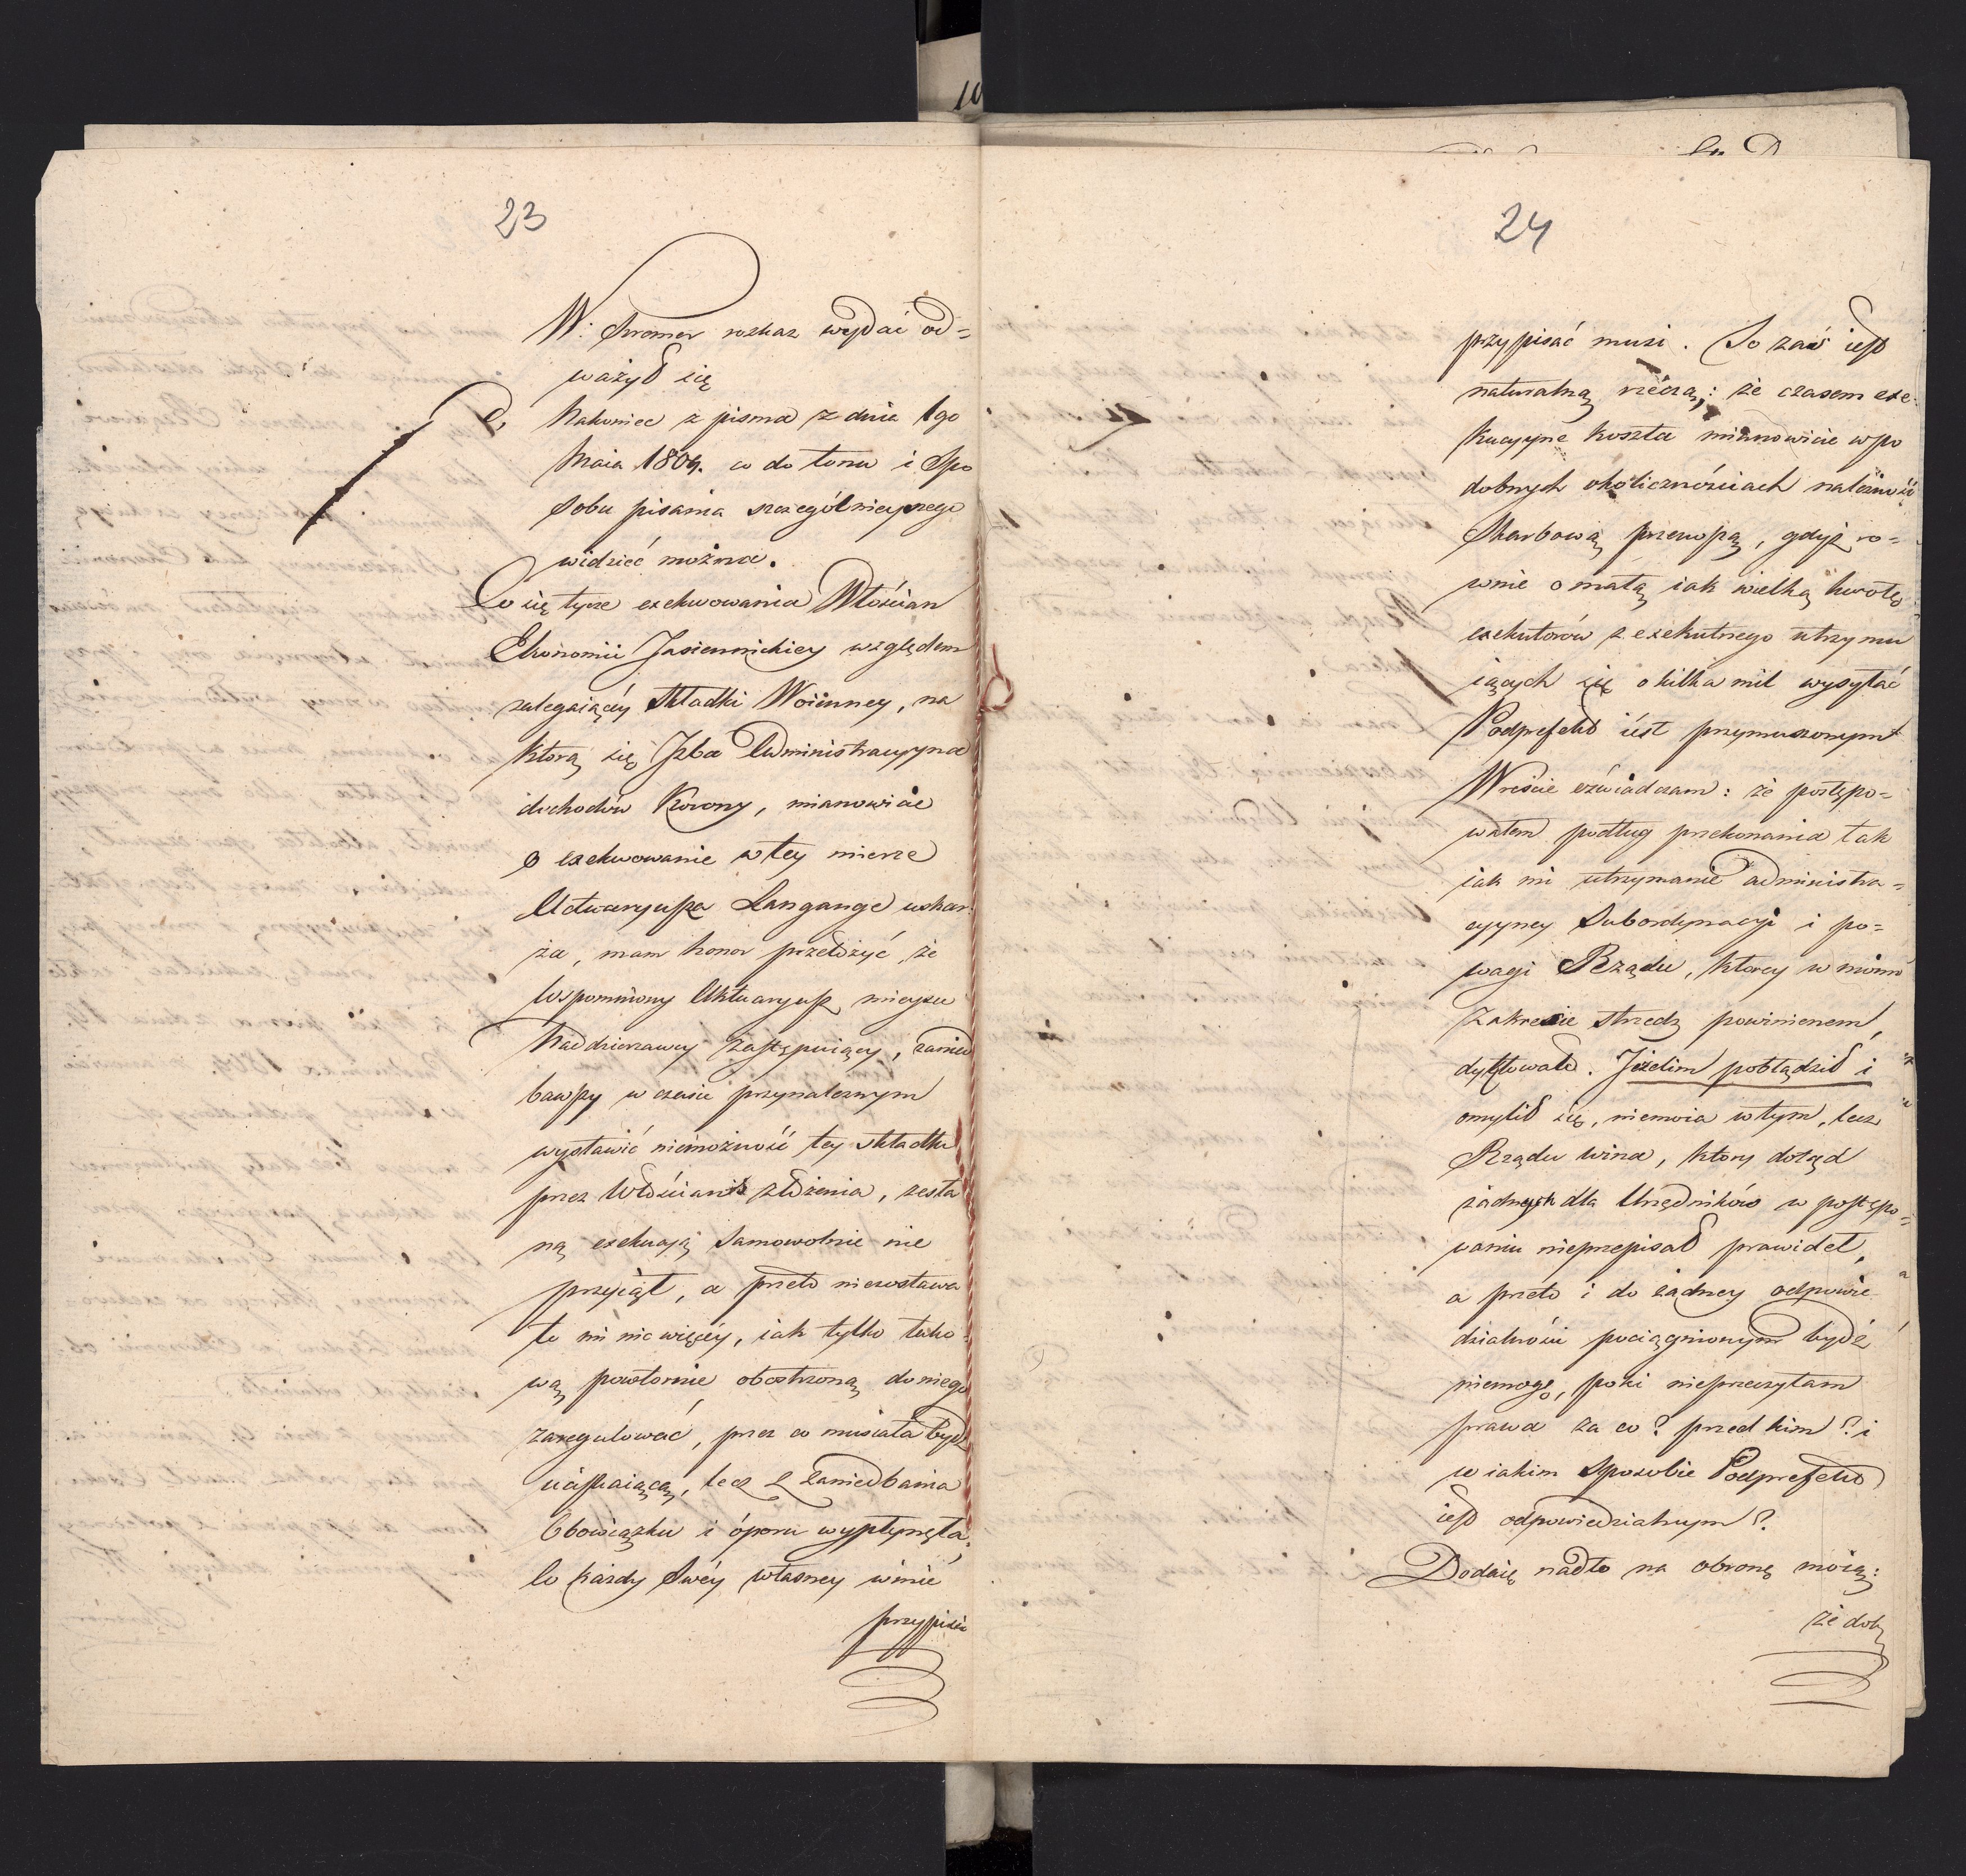 23
W: Stromer rozkaz wydać od=
ważył się
e, Nakoniec z pisma z dnia 1go
Maia 1809. co do tonu i spo
sobu pisania szczególnieyszego
widzieć można.
Co się tycze exekwowania Włościan
Ekonomii Jasiennickiey względem
zalegaiącéy Składki Woienney, na
którą się Izba Administracyyna
dochodów Korony, mianowicie
o exekwowanie w tey mierze
Actuaryusza Langange uskar=
ża, mam honor przełożyć, że
wspomniony Aktuaryusz mieysce
Naddzierzawcy zastępuiący, zanied
bawszy w czasie przynależnym
wystawić niemożność tey składki
przez Włościan złożenia, zesła
ną exekucyją samowolnie nie
przyiął, a przeto niezostawa
ło mi nic więcéy, iak tylko tako=
wą powtórnie obostrzoną do niego
zaregulować, przez co musiała bydź
uciskaiącą, lecz z zaniedbania
Obowiązku i óporu wypłynęła,
Co każdy swéy własney winie
przypisać
24
przypisać musi. To zaś iest
naturalną rzeczą,: że czasem exe=
kucyyne koszta mianowicie w po
dobnych okolicznościach należność
Skarbową przewyszą, gdyż ró=
wnie o małą iak wielką kwotę
exekutorów z exekutnego utrzymu
iących się o kilka mil wysyłać
Podprefekt iést przymuszonym
Wreście oświadczam: że postępo=
wałem podług przekonania tak
iak mi utrzymanie administra=
cyyney Subordynacyi i po=
wagi Rządu, którey w moim
Zakresie strzedz powinienem,
dyktowało. Jeżelim pobłądził i
omylił się, niemoia w tym, lecz
Rządu wina, który dotąd
żadnych dla Urzędników w postępo=
waniu nieprzepisał prawideł,
a przeto i do żadney odpowie
dzialności pociągnionym bydź
niemogę, poki nieprzeczytam
prawa za co? przed kim? i
w iakim Sposobie Podprefekt
iest odpowiedzialnym?
Dodaię nadto na obronę moią:
że dotąd